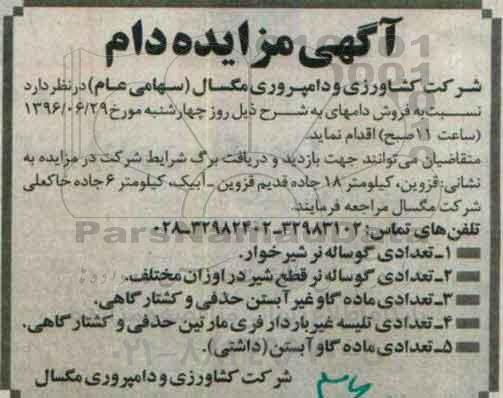 آگهی مزایده دام
شرکت کشاورزی و دامپروری مگسال (سهامی عام) در نظر دارد
نسبت به فروش دامهای به شرح ذیل روز چهارشنبه مورخ ۱۳۹۶/۰۶/۲۹
(ساعت ۱۱ صبح) اقدام نماید.
متقاضیان می‌توانند جهت بازدید و دریافت برگ شرایط شرکت در مزایده به
نشانی: قزوین، کیلومتر ۱۸ جاده قدیم قزوین - آبیک، کیلومتر ۶ جاده خاکعلی
شرکت مگسال مراجعه فرمایند.
تلفن های تماس: ۳۲۹۸۳۱۰۲-۳۲۹۸۲۴۰۲-۰۲۸
۱- تعدادی گوساله نر شیر خوار.
۲- تعدادی گوساله نر قطع شیر در اوزان مختلف.
۳- تعدادی ماده گاو غیر آبستن حذفی و کشتارگاهی.
۴- تعدادی تلیسه غیر باردار فری مارتین حذفی و کشتارگاهی.
۵- تعدادی ماده گاو آبستن (داشتی).
شرکت کشاورزی و دامپروری مگسال